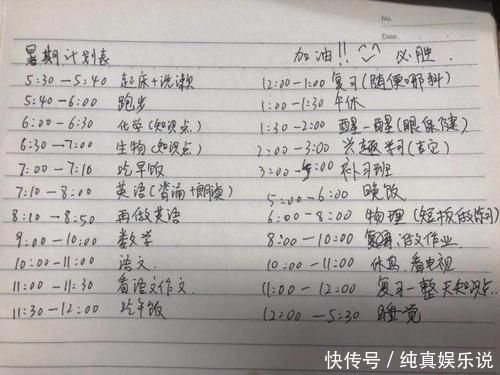 No.
Date.
暑期计划表
5:30 — 5:40 起床+洗漱
5:40 — 6:00 跑步
6:00 — 6:30 化学(知识点)
6:30 — 7:00 生物(知识点)
7:00 — 7:10 吃早饭
7:10 — 8:00 英语(背诵+朗读)
8:10 — 8:50 再做英语
9:00 — 10:00 数学
10:00 — 11:00 语文.
11:00 — 11:30 看语文作文
11:30 — 12:00 吃午饭
加油!! 必胜.
12:00 — 1:00 复习(随便哪科)
1:00 — 1:30 午休
1:30 — 2:00 醒一醒(眼保健)
2:00 — 3:00 兴趣学习(吉它)
3:00 — 5:00 补习班
5:00 — 6:00 晚饭
6:00 — 8:00 物理(短板做练习)
8:00 — 10:00 作业
10:00 — 11:00 休息.看电视
11:00 — 12:00 复习一整天知识点..
12:00 — 5:30 睡觉
快传号/纯真娱乐说